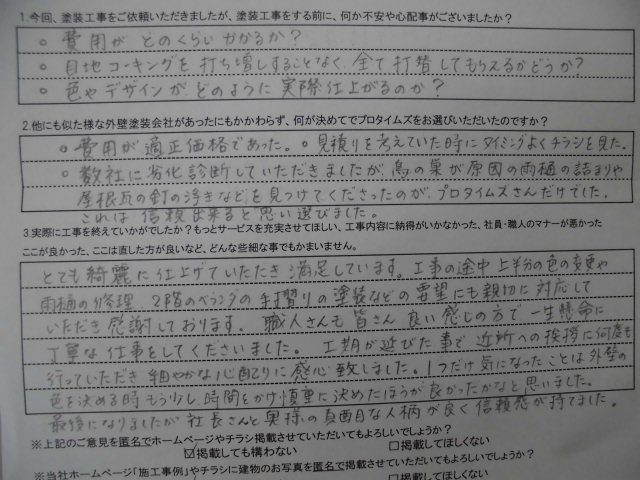 1.今回、塗装工事をご依頼いただきましたが、塗装工事をする前に、何か不安や心配事がございましたか？
○ 費用が どのくらいかかるか？
○ 目地コーキングを打ち増しすることなく、全て打替してもらえるかどうか？
○ 色やデザインが どのように 実際仕上がるのか？
2.他にも似た様な外壁塗装会社があったにもかかわらず、何が決めてでプロタイムズをお選びいただいたのですか？
○ 費用が適正価格であった。○ 見積りを考えていた時にタイミングよくチラシを見た。
○ 数社に劣化診断していただきましたが、鳥の巣が原因の雨樋の詰まりや
屋根瓦の釘の浮きなどを見つけてくださったのが、プロタイムズさんだけでした。
これは 信頼出来ると思い選びました。
3.実際に工事を終えていかがでしたか？もっとサービスを充実させてほしい、工事内容に納得がいかなかった、社員・職人のマナーが悪かった
ここが良かった、ここは直した方が良いなど、どんな些細な事でもかまいません。
とても綺麗に仕上げていただき満足しています。工事の途中上半分の色の変更や
雨樋の修理、2階のベランダの手摺りの塗装などの要望にも親切に対応して
いただき感謝しております。職人さんも皆さん良い感じの方で一生懸命に
丁寧な仕事をしてくださいました。工期が延びた事で近所への挨拶に何度も
行っていただき細やかな心配りに感心致しました。1つだけ気になったことは外壁の
色を決める時もう少し時間をかけ慎重に決めたほうが良かったかなと思いました。
最後になりましたが社長さんと奥様の真面目な人柄が良く信頼感が持てました。
※上記のご意見を匿名でホームページやチラシ掲載させていただいてもよろしいでしょうか？
☑掲載しても構わない □掲載してほしくない
※当社ホームページ「施工事例」やチラシに建物のお写真を匿名で掲載させていただいてもよろしいでしょうか？
□掲載してほしくない